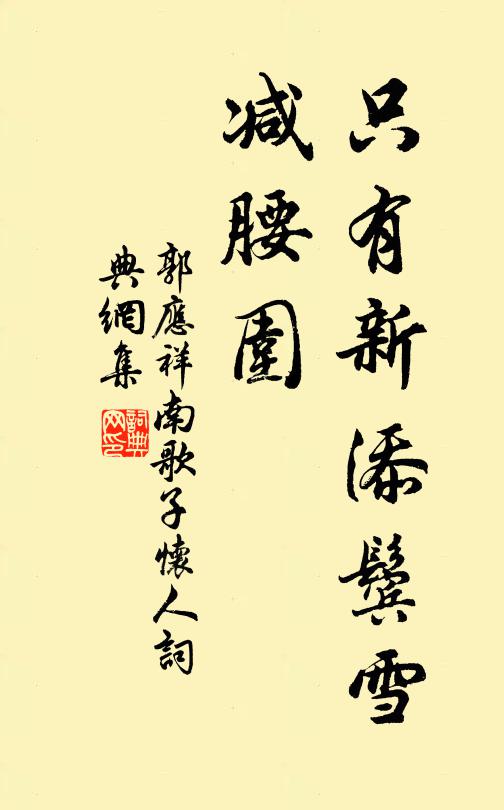 只有新添鬓雪
减腰围
郭應祥南歌子懷人詞
典網集
詞典网印